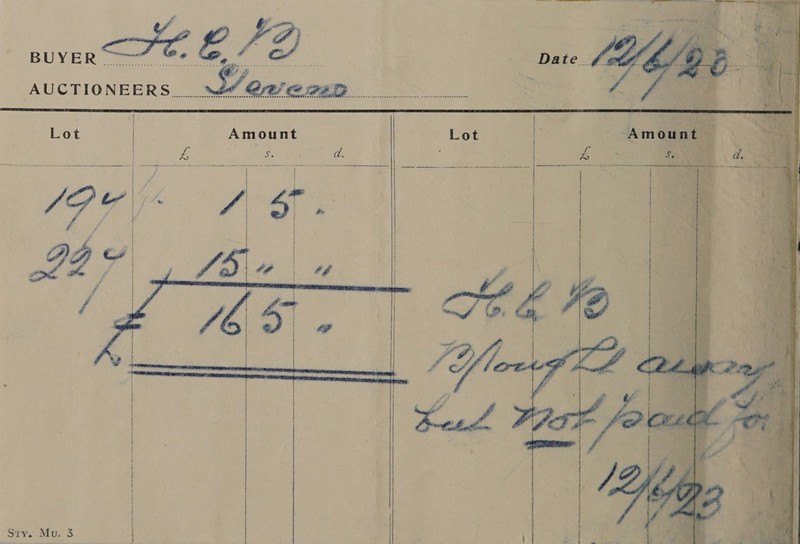 BUYER H.C.B Date 12/6/23
AUCTIONEERS Stevens
Lot Amount Lot Amount
£ s. d. £ s. d.
197 1 5 .
227 15 " "
£ 16 5 "
H.C.B
Brought away
but Not paid for
12/6/23
STY. MU. 3